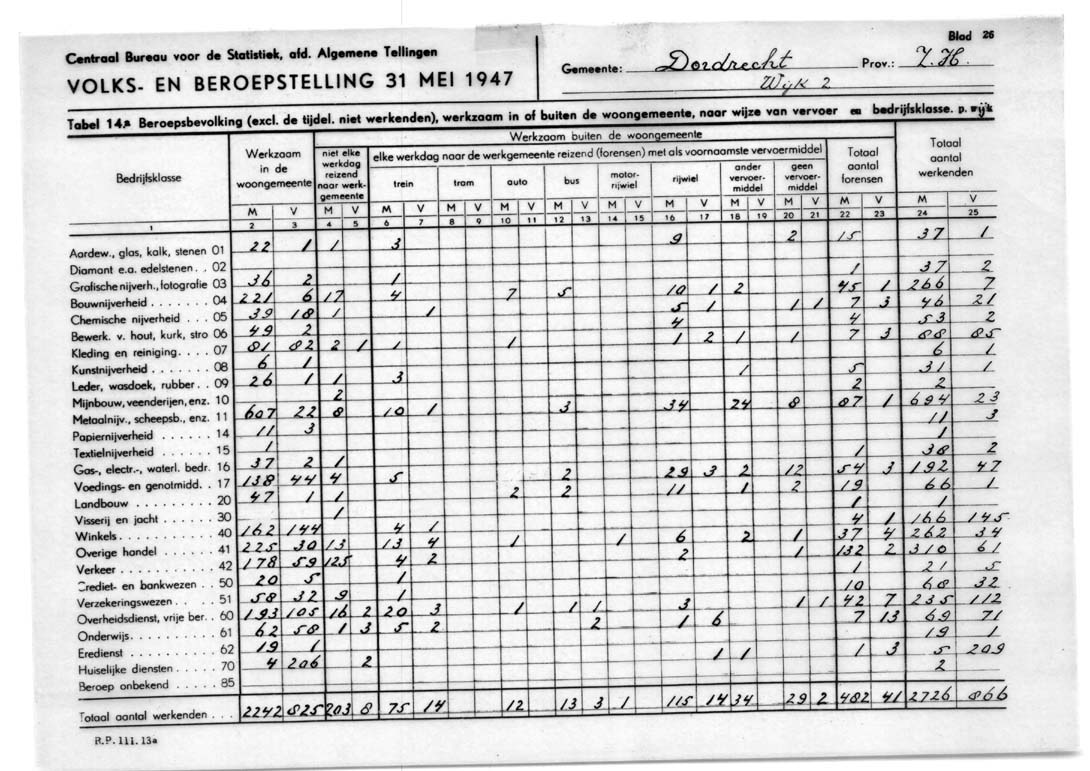 Blad 26
Centraal Bureau voor de Statistiek, afd. Algemene Tellingen
VOLKS- EN BEROEPSTELLING 31 MEI 1947
Gemeente: Dordrecht Prov.: Z.H.
Wijk 2
Tabel 14a Beroepsbevolking (excl. de tijdel. niet werkenden), werkzaam in of buiten de woongemeente, naar wijze van vervoer en bedrijfsklasse. p. wijk
Bedrijfsklasse
Werkzaam
in de
woongemeente
Werkzaam buiten de woongemeente
niet elke
werkdag
reizend
naar werk-
gemeente
elke werkdag naar de werkgemeente reizend (forensen) met als voornaamste vervoermiddel
trein tram auto bus
motor-
rijwiel
rijwiel
ander
vervoer-
middel
geen
vervoer-
middel
Totaal
aantal
forensen
Totaal
aantal
werkenden
M V M V M V M V M V M V M V M V M V M V M V M V
1 2 3 4 5 6 7 8 9 10 11 12 13 14 15 16 17 18 19 20 21 22 23 24 25
Aardew., glas, kalk, stenen 01 22 1 1 3 9 2 15 37 1
Diamant e.a. edelstenen . . 02
Grafische nijverh., fotografie 03 36 2 1 1 37 2
Bouwnijverheid . . . . . . . 04 221 6 17 4 7 5 10 1 2 45 1 266 7
Chemische nijverheid . . . 05 39 18 1 1 5 1 1 1 7 3 46 21
Bewerk. v. hout, kurk, stro 06 49 2 4 4 53 2
Kleding en reiniging. . . . 07 81 82 2 1 1 1 1 2 1 1 7 3 88 85
Kunstnijverheid . . . . . . . 08 6 1 6 1
Leder, wasdoek, rubber. . 09 26 1 1 3 1 5 31 1
Mijnbouw, veenderijen, enz. 10 2 2 2
Metaalnijv., scheepsb., enz. 11 607 22 8 10 1 3 34 24 8 87 1 694 23
Papiernijverheid . . . . . . 14 11 3 11 3
Textielnijverheid . . . . . . 15 1 1
Gas-, electr.-, waterl. bedr. 16 37 2 1 1 38 2
Voedings- en genotmidd. . 17 138 44 4 5 2 29 3 2 12 54 3 192 47
Landbouw . . . . . . . . . . 20 47 1 1 2 2 11 1 2 19 66 1
Visserij en jacht . . . . . . 30 1 1 1
Winkels. . . . . . . . . . . . 40 162 144 4 1 4 1 166 145
Overige handel . . . . . . 41 225 30 13 13 4 1 1 6 2 1 37 4 262 34
Verkeer . . . . . . . . . . . 42 178 59 125 4 2 2 1 132 2 310 61
Crediet- en bankwezen . . 50 20 5 1 1 21 5
Verzekeringswezen . . . . 51 58 32 9 1 10 68 32
Overheidsdienst, vrije ber. . 60 193 105 16 2 20 3 1 1 1 3 1 1 42 7 235 112
Onderwijs. . . . . . . . . . . 61 62 58 1 3 5 2 2 1 6 7 13 69 71
Eredienst . . . . . . . . . . 62 19 1 19 1
Huiselijke diensten . . . . . 70 4 206 2 1 1 1 3 5 209
Beroep onbekend . . . . . 85 2
Totaal aantal werkenden . . . 2242 825 203 8 75 14 12 13 3 1 115 14 34 29 2 482 41 2726 866
R.P. 111. 13a